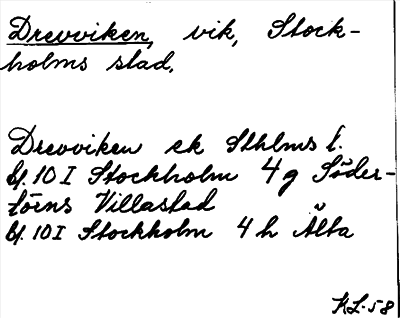 Drevviken, vik, Stock-
holms stad.
Drevviken ek Sthlms t.
bl. 10 I Stockholm 4g Söder-
törns Villastad
bl. 10 I Stockholm 4h Älta
KL-58